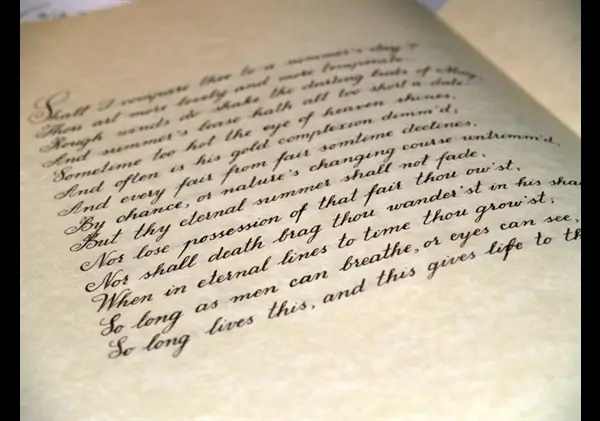 Shall I compare thee to a summer's day?
Thou art more lovely and more temperate.
Rough winds do shake the darling buds of May,
And summer's lease hath all too short a date.
Sometime too hot the eye of heaven shines,
And often is his gold complexion dimm'd;
And every fair from fair somtime declines,
By chance, or nature's changing course untrimm'd,
But thy eternal summer shall not fade,
Nor lose possession of that fair thou ow'st,
Nor shall death brag thou wander'st in his sha
When in eternal lines to time thou grow'st;
So long as men can breathe, or eyes can see,
So long lives this, and this gives life to th